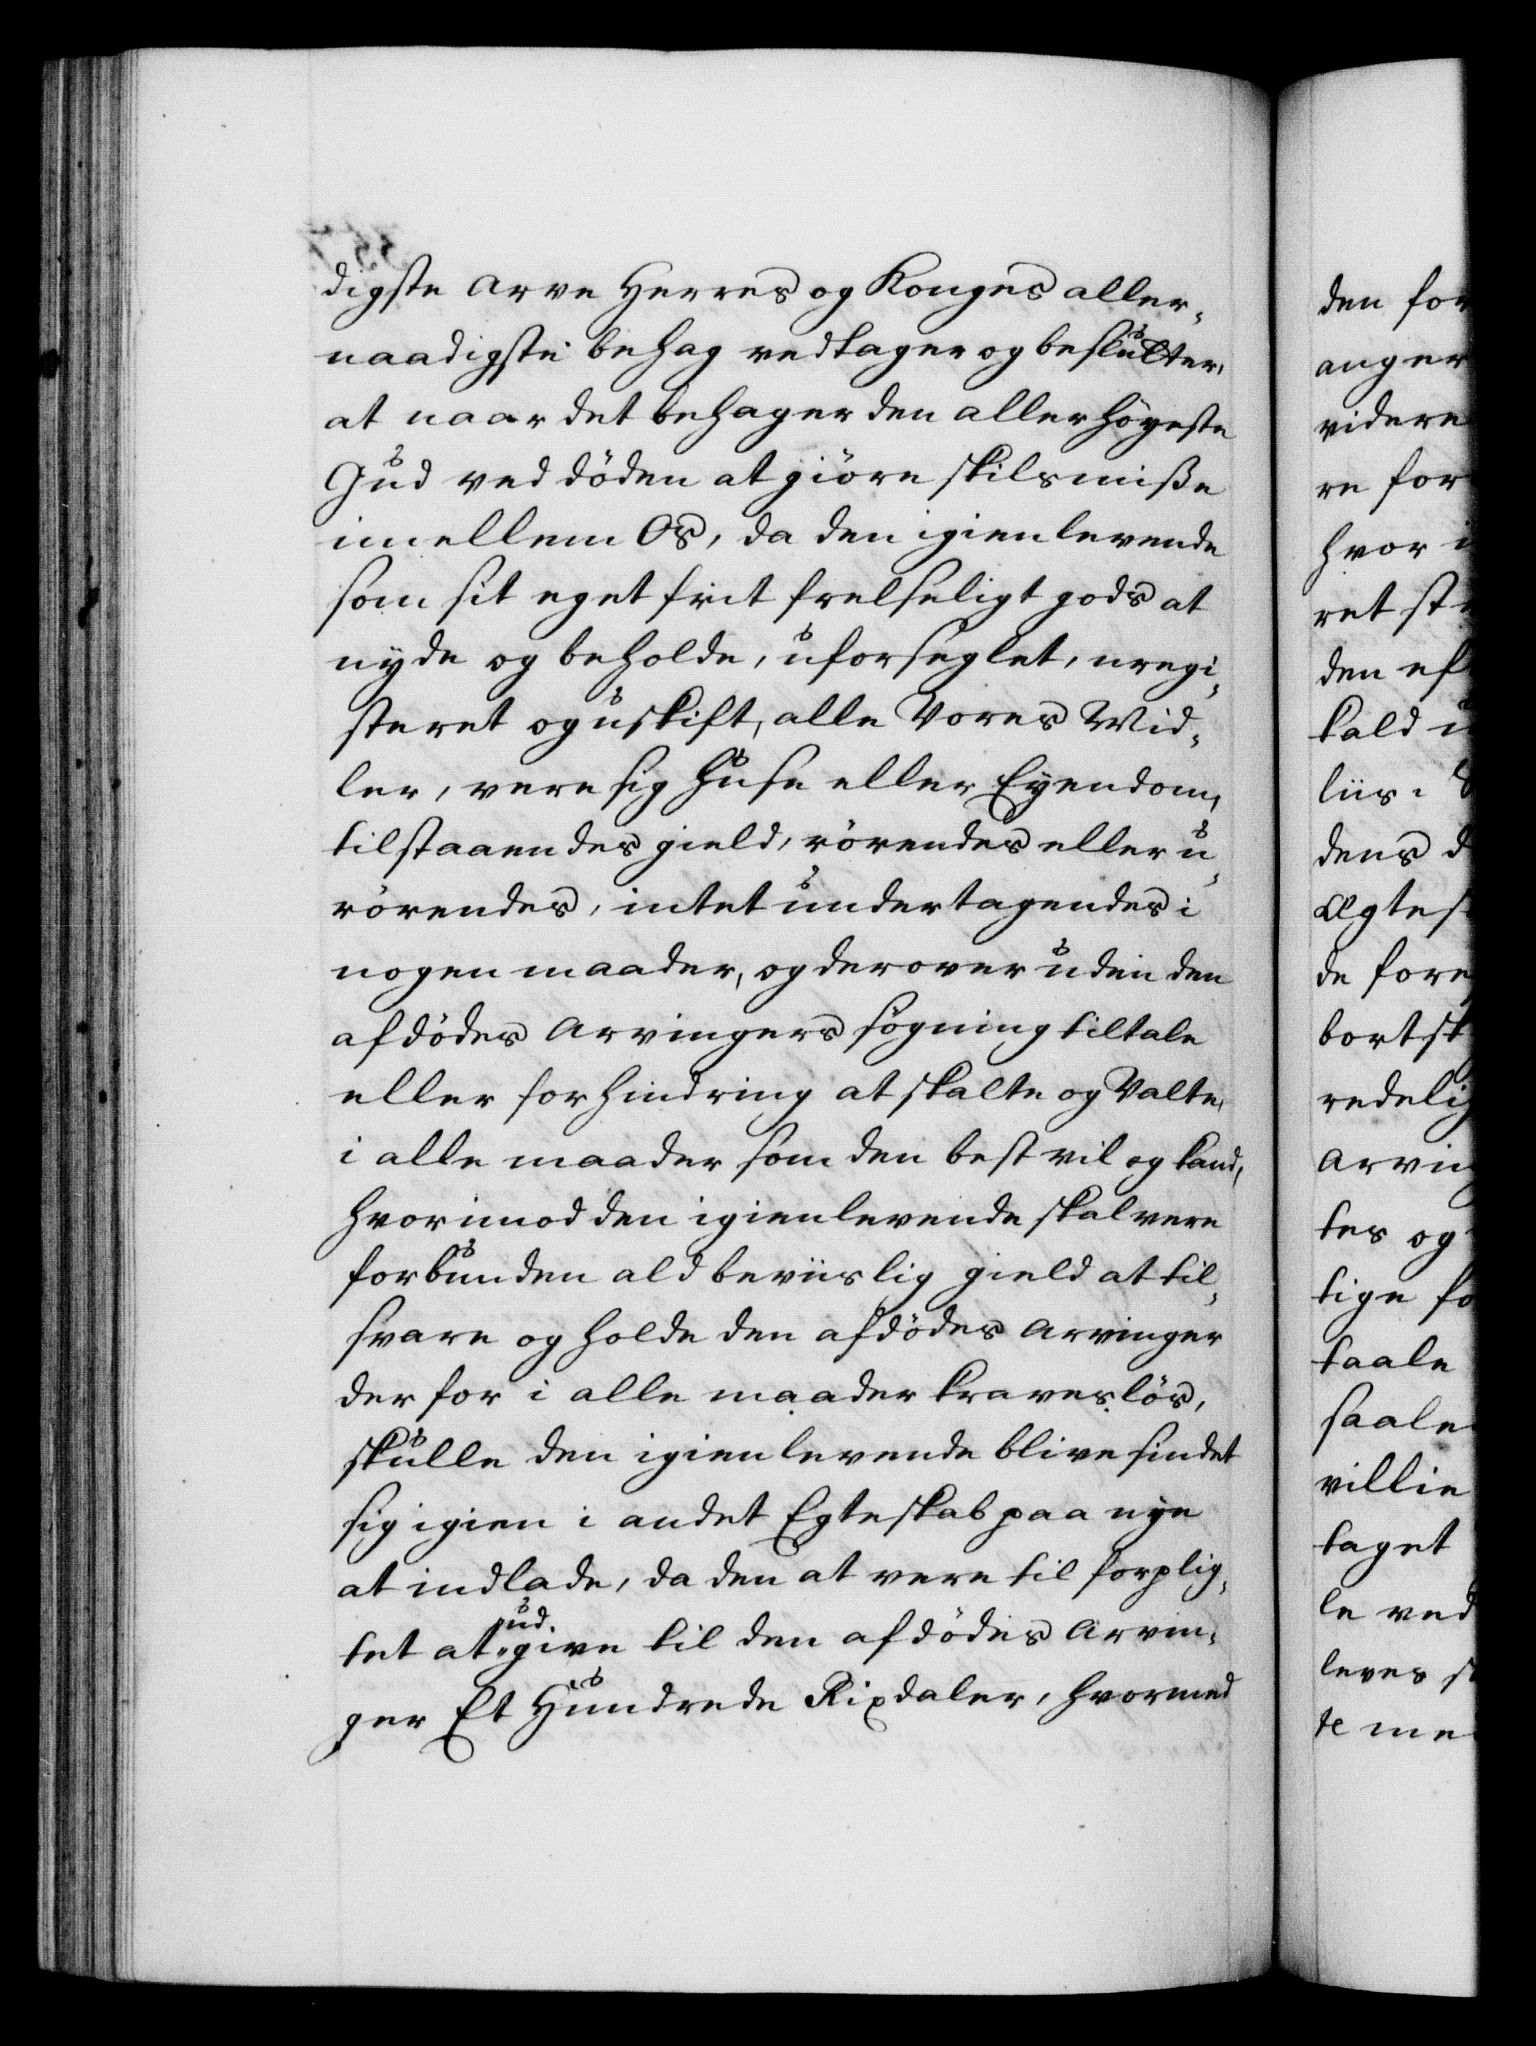 digste Arve Herres og Konges aller-
naadigste behag vedtager og beslutter,
at naar det behager den allerhöyeste
Gud ved döden at giöre skilsmiße
imellem Os, da den igienlevende
som sit eget frit frelseligt gods at
nyde og beholde, uforseglet, uregi-
steret og uskift, alle Vores Mid-
ler, vere sig Huse eller Eyendom,
tilstaaendes gield, rörendes eller u-
rörendes, intet undertagendes i
nogen maader, og derover uden den
afdödes Arvingers sögning tiltale
eller forhindring at skalte og Valte,
i alle maader som den best vil og kand,
hvorimod den igienlevende skal vere
forbunden ald beviislig gield at til-
svare og holde den afdödes Arvinger
der for i alle maader kraveslös,
skulle den igienlevende blive sindet
sig igien i andet Egteskab paa nye
at indlade, da den at vere til forplig-
tet at udgive til den afdödes Arvin-
ger Et Hundrede Rixdaler, hvormed
den for
anger
videre
re for
hvor i
ret st
den ef
kald u
liis.
dens d
Ægtes
de fore
bortsk
redelig
Arving
tes og
tige fo
taale
saale
villie
taget
le ved
leves s
te me